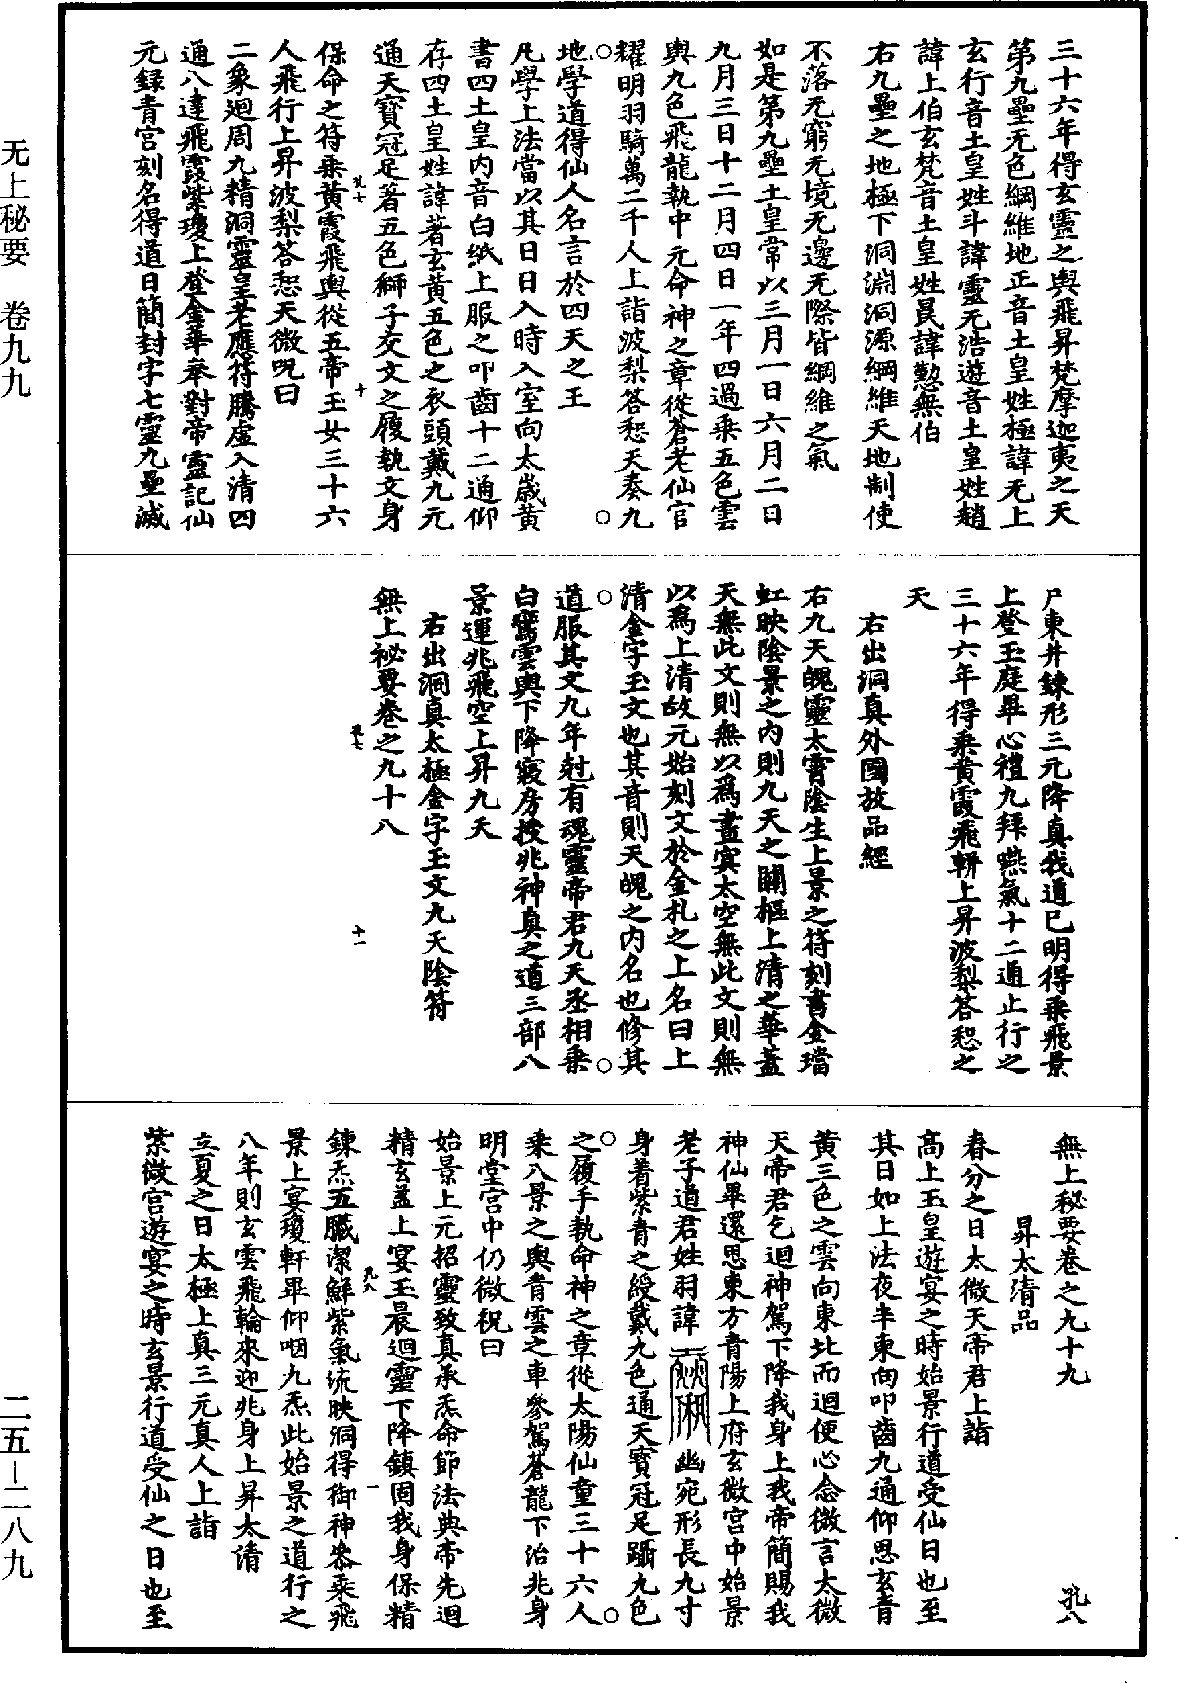 三十六年得玄靈之輿飛昇梵摩迦夷之天
第九壘无色綱維地正音土皇姓極諱无上
玄行音土皇姓斗諱靈元浩遊音土皇姓趙
諱上伯玄梵音土皇姓㒷諱勲無伯
右九壘之地極下洞淵洞源綱維天地制使
不落无窮无境无邊无際皆綱維之氣
如是第九壘土皇常以三月一日六月二日
九月三日十二月四日一年四過乘五色雲
輿九色飛龍執中元命神之章從蒼老仙官
耀明羽騎萬二千人上詣波梨答惒天奏九
地學道得仙人名言於四天之王
凡學上法當以其日日入時入室向太歲黃
書四土皇內音白紙上服之叩齒十二通仰
存四土皇姓諱著玄黃五色之衣頭戴九元
通天寶冠足著五色獅子交文之履執文身
保命之符乘黃霞飛輿從五帝玉女三十六
人飛行上昇波梨答惒天微呪曰
二象迴周九精洞靈皇老應符騰虛入清四
通八達飛霞紫瓊上登金華奉對帝靈記仙
元錄青宮刻名得道日簡封字七靈九壘滅
尸東井鍊形三元降真我道已明得乘飛景
上登玉庭畢心禮九拜嚥氣十二通止行之
三十六年得乘黃霞飛軿上昇波梨答惒之
天
右出洞真外國放品經
右九天魄靈太霄陰生上景之符刻書金璫
虹映陰景之內則九天之關樞上清之華蓋
天無此文則無以爲晝㝠太空無此文則無
以爲上清故元始刻文於金札之上名曰上
清金字玉文也其音則天魄之內名也修其
道服其文九年尅有魂靈帝君九天丞相乘
白鸞雲輿下降寢房授兆神真之道三部八
景運兆飛空上昇九天
右出洞真太極金字玉文九天陰符
無上祕要卷之九十八
無上秘要卷之九十九
孔八
昇太清品
春分之日太微天帝君上詣
高上玉皇遊宴之時始景行道受仙日也至
其日如上法夜半東向叩齒九通仰思玄青
黃三色之雲向東北而迴便心念微言太微
天帝君乞迴神駕下降我身上我帝簡賜我
神仙畢還思東方青陽上府玄微宮中始景
老子道君姓羽諱幽宛形長九寸
身着紫青之綬戴九色通天寶冠足躡九色
之履手執命神之章從太陽仙童三十六人
乘八景之輿青雲之車參駕蒼龍下治兆身
明堂宮中仍微祝曰
始景上元招靈致真承炁命節法典帝先迴
精玄蓋上宴玉晨迴靈下降鎮固我身保精
鍊炁五臟潔鮮紫氣流映洞得御神峇乘飛
景上宴瓊軒畢仰咽九炁此始景之道行之
八年則玄雲飛輪來迎兆身上昇太清
立夏之日太極上真三元真人上詣
紫微宮遊宴之時玄景行道受仙之日也至
无上秘要 卷九九
二五-二八九